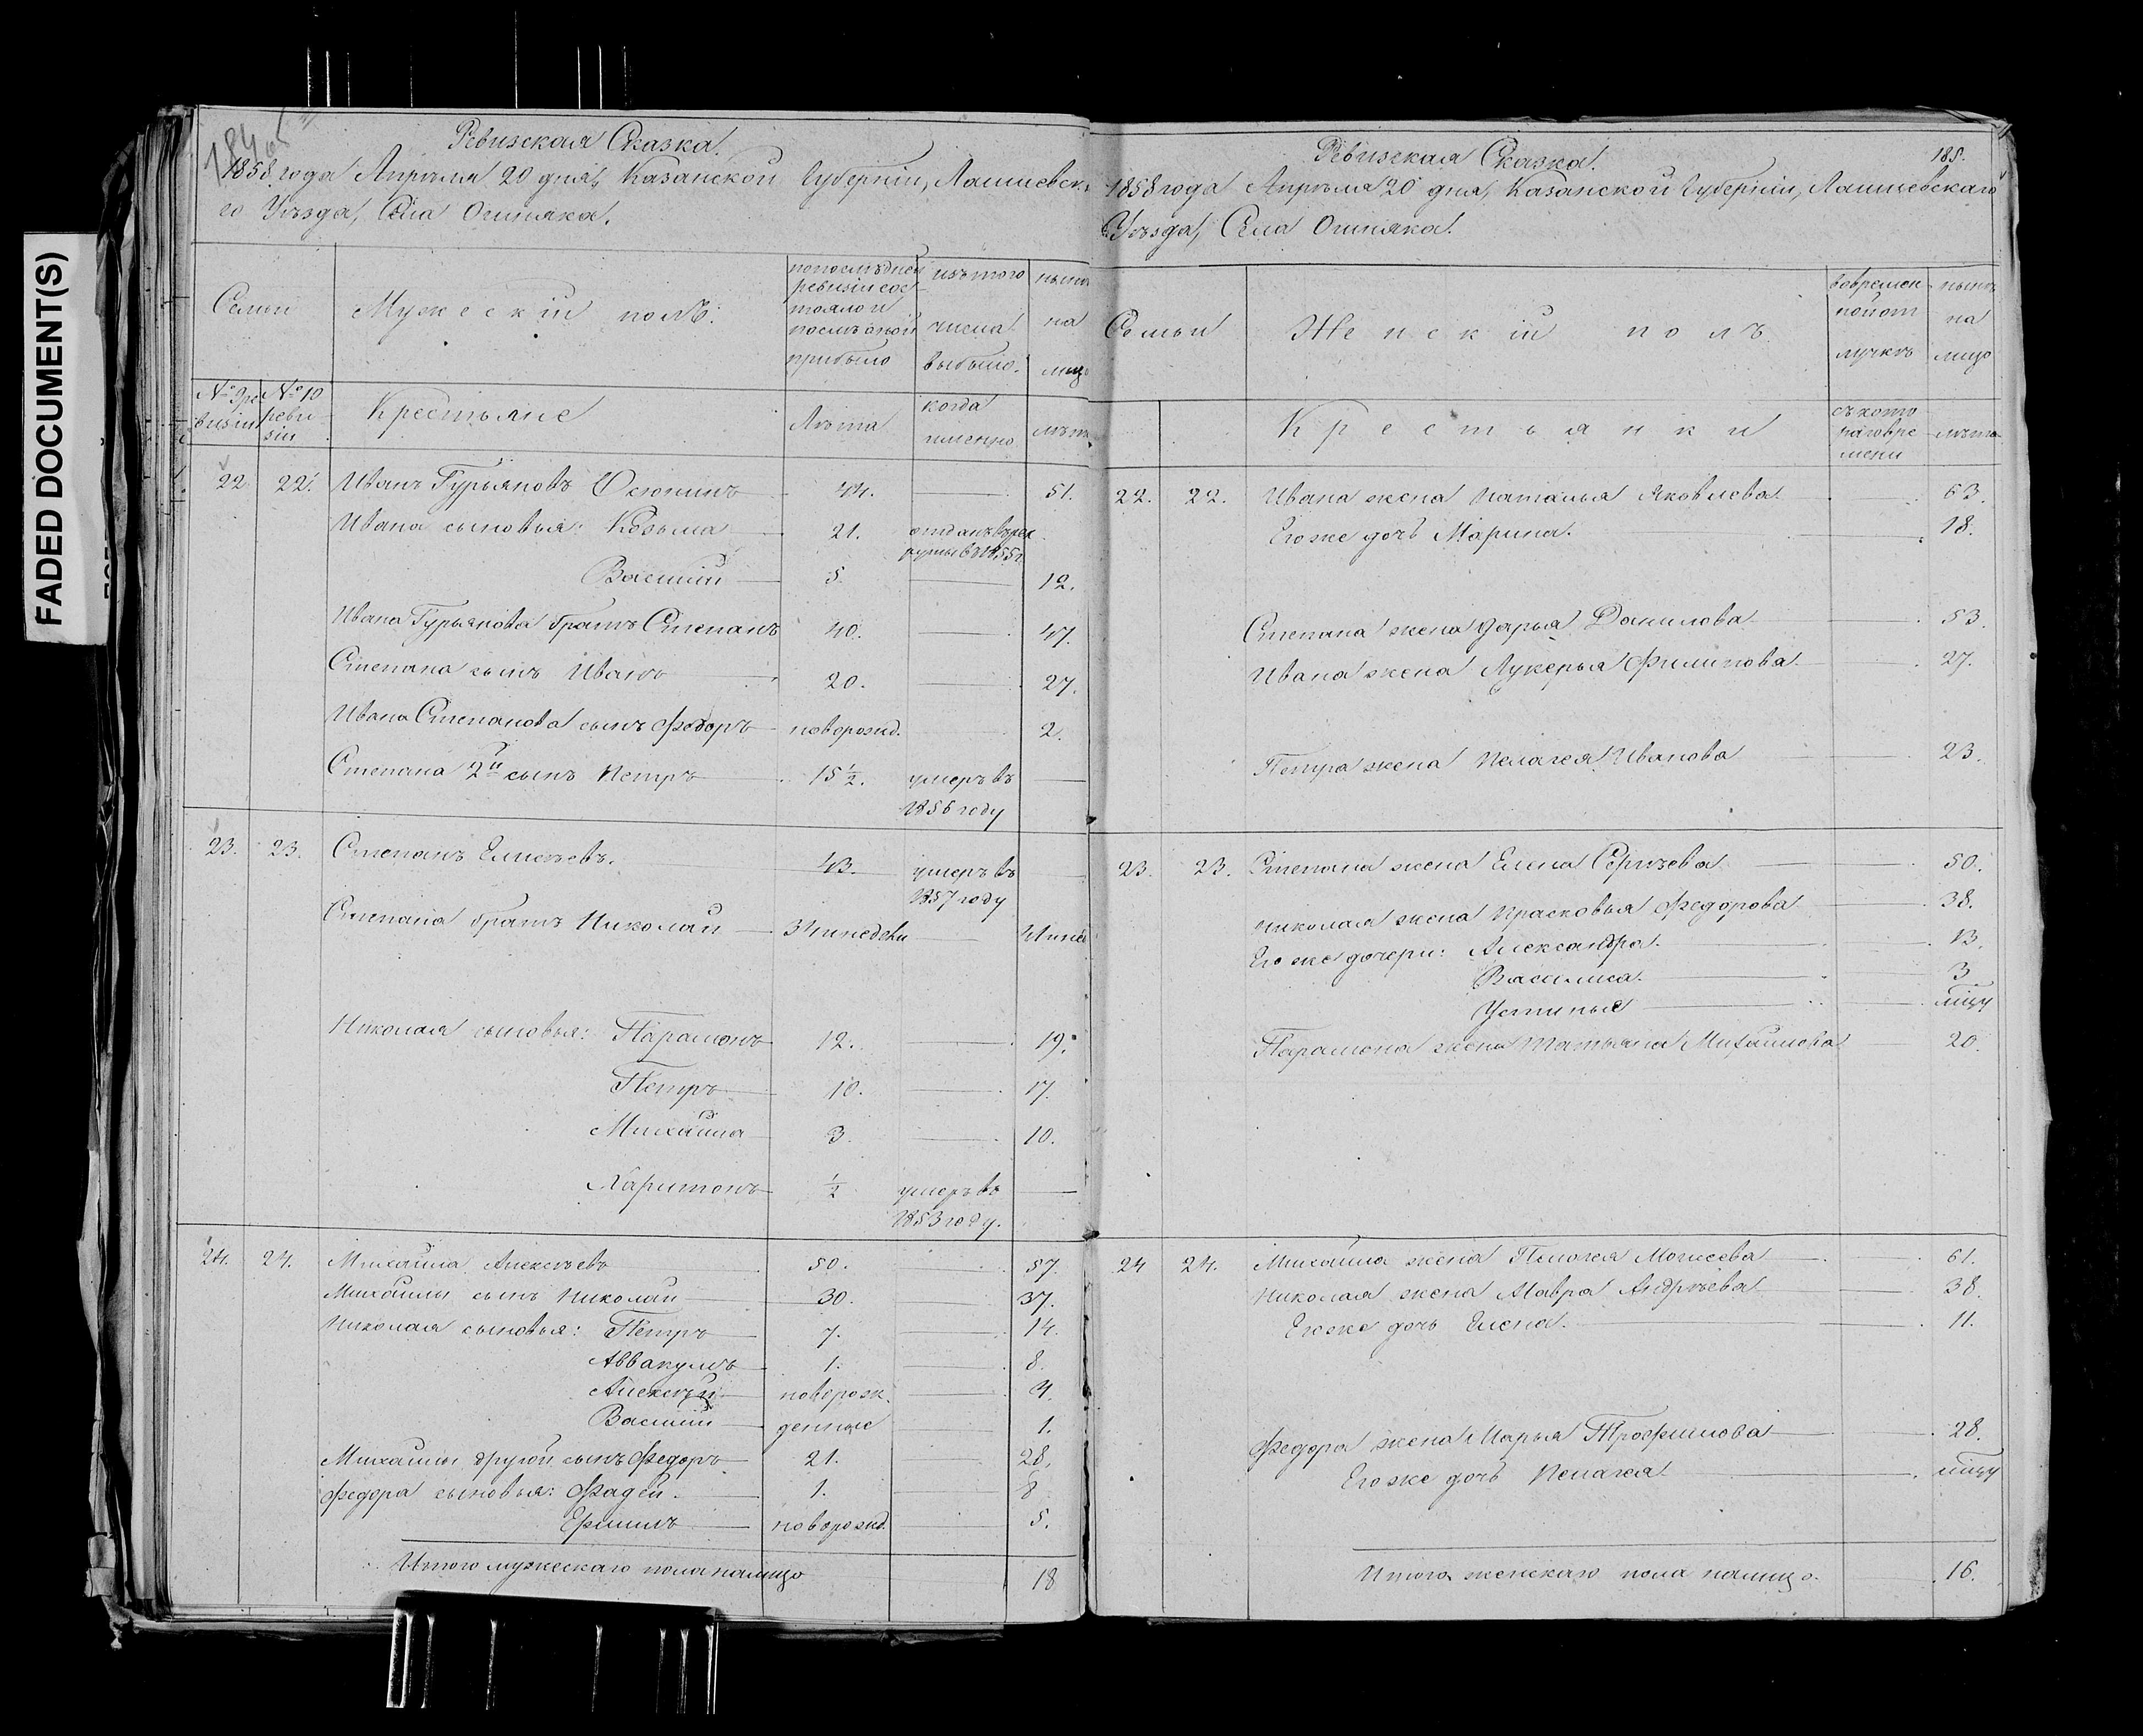 FADED DOCUMENT(S)
184 об
Ревизская Сказка.
1858 года Апрѣля 20 дня, Казанской Губерніи, Лаишевска
го Уѣзда, Села Ошняка.
Семьи
Мужескій полъ.
по послѣдней ревизіи состояло и послѣ оной прибыло
изъ того числа выбыло.
нынѣ на лицо
№ 9 ревизіи
№ 10 ревизіи
Крестьяне
Лѣта
когда именно
лѣта
22. 22. Иванъ Гурьяновъ 44. 51.
Ивана сыновья: Козьма 21. отданъ въ рек
руты въ 1855 г.
Василій 5. 12.
Ивана Гурьянова братъ Степанъ 40. 47.
Степана сынъ Иванъ 20. 27.
Ивана Степанова сынъ Федоръ новорожд. 2.
Степана 2й сынъ Петръ 15 1/2. умеръ въ
1856 году
23. 23. Степанъ Елисѣевъ. 43. умеръ въ
1857 году
Степана братъ Николай 34
Николая сыновья: Парамонъ 12. 19.
Петръ 10. 17.
Михайла 3. 10.
Харитонъ 1/2 умеръ въ
1853 году.
24. 24. Михайла Алексѣевъ 50. 57.
Михайлы сынъ Николай 30. 37.
Николая сыновья: Петръ 7. 14.
Аввакумъ 1. 8.
Алексѣй новорож 4.
Василій денные 1.
Михайлы другой сынъ Федоръ 21. 28.
Федора сыновья: Фадей. 1. 8
Ефимъ новорожд. 5.
Итого мужескаго пола налицо 18
185.
Ревизская Сказка.
1858 года Апрѣля 20 дня, Казанской Губерніи, Лаишевскаго
Уѣзда, Села Ошняка.
Семьи
Женскій полъ.
во временной отлучкѣ
нынѣ на лицо
Крестьянки
съ котораго времени
лѣта
22. 22. Ивана жена Наталья Яковлева. 53.
Его же дочь Марина. 18.
Степана жена Дарья Данилова 53.
Ивана жена Лукерья Филипова 27.
Петра жена Пелагея Иванова 23.
23. 23. Степана жена Елена Сергѣева 50.
Николая жена Прасковья Федорова 38.
Его же дочери: Александра. 13.
Василиса. 3
Устинья
Парамона жена Татьяна Михайлова 20.
24 24. Михайла жена Пелагея Моисеева 61.
Николая жена Мавра Андрѣева 38.
Его же дочь Елена. 11.
Федора жена Марья Трофимова 28.
Его же дочь Пелагея
Итого женскаго пола налицо. 16.